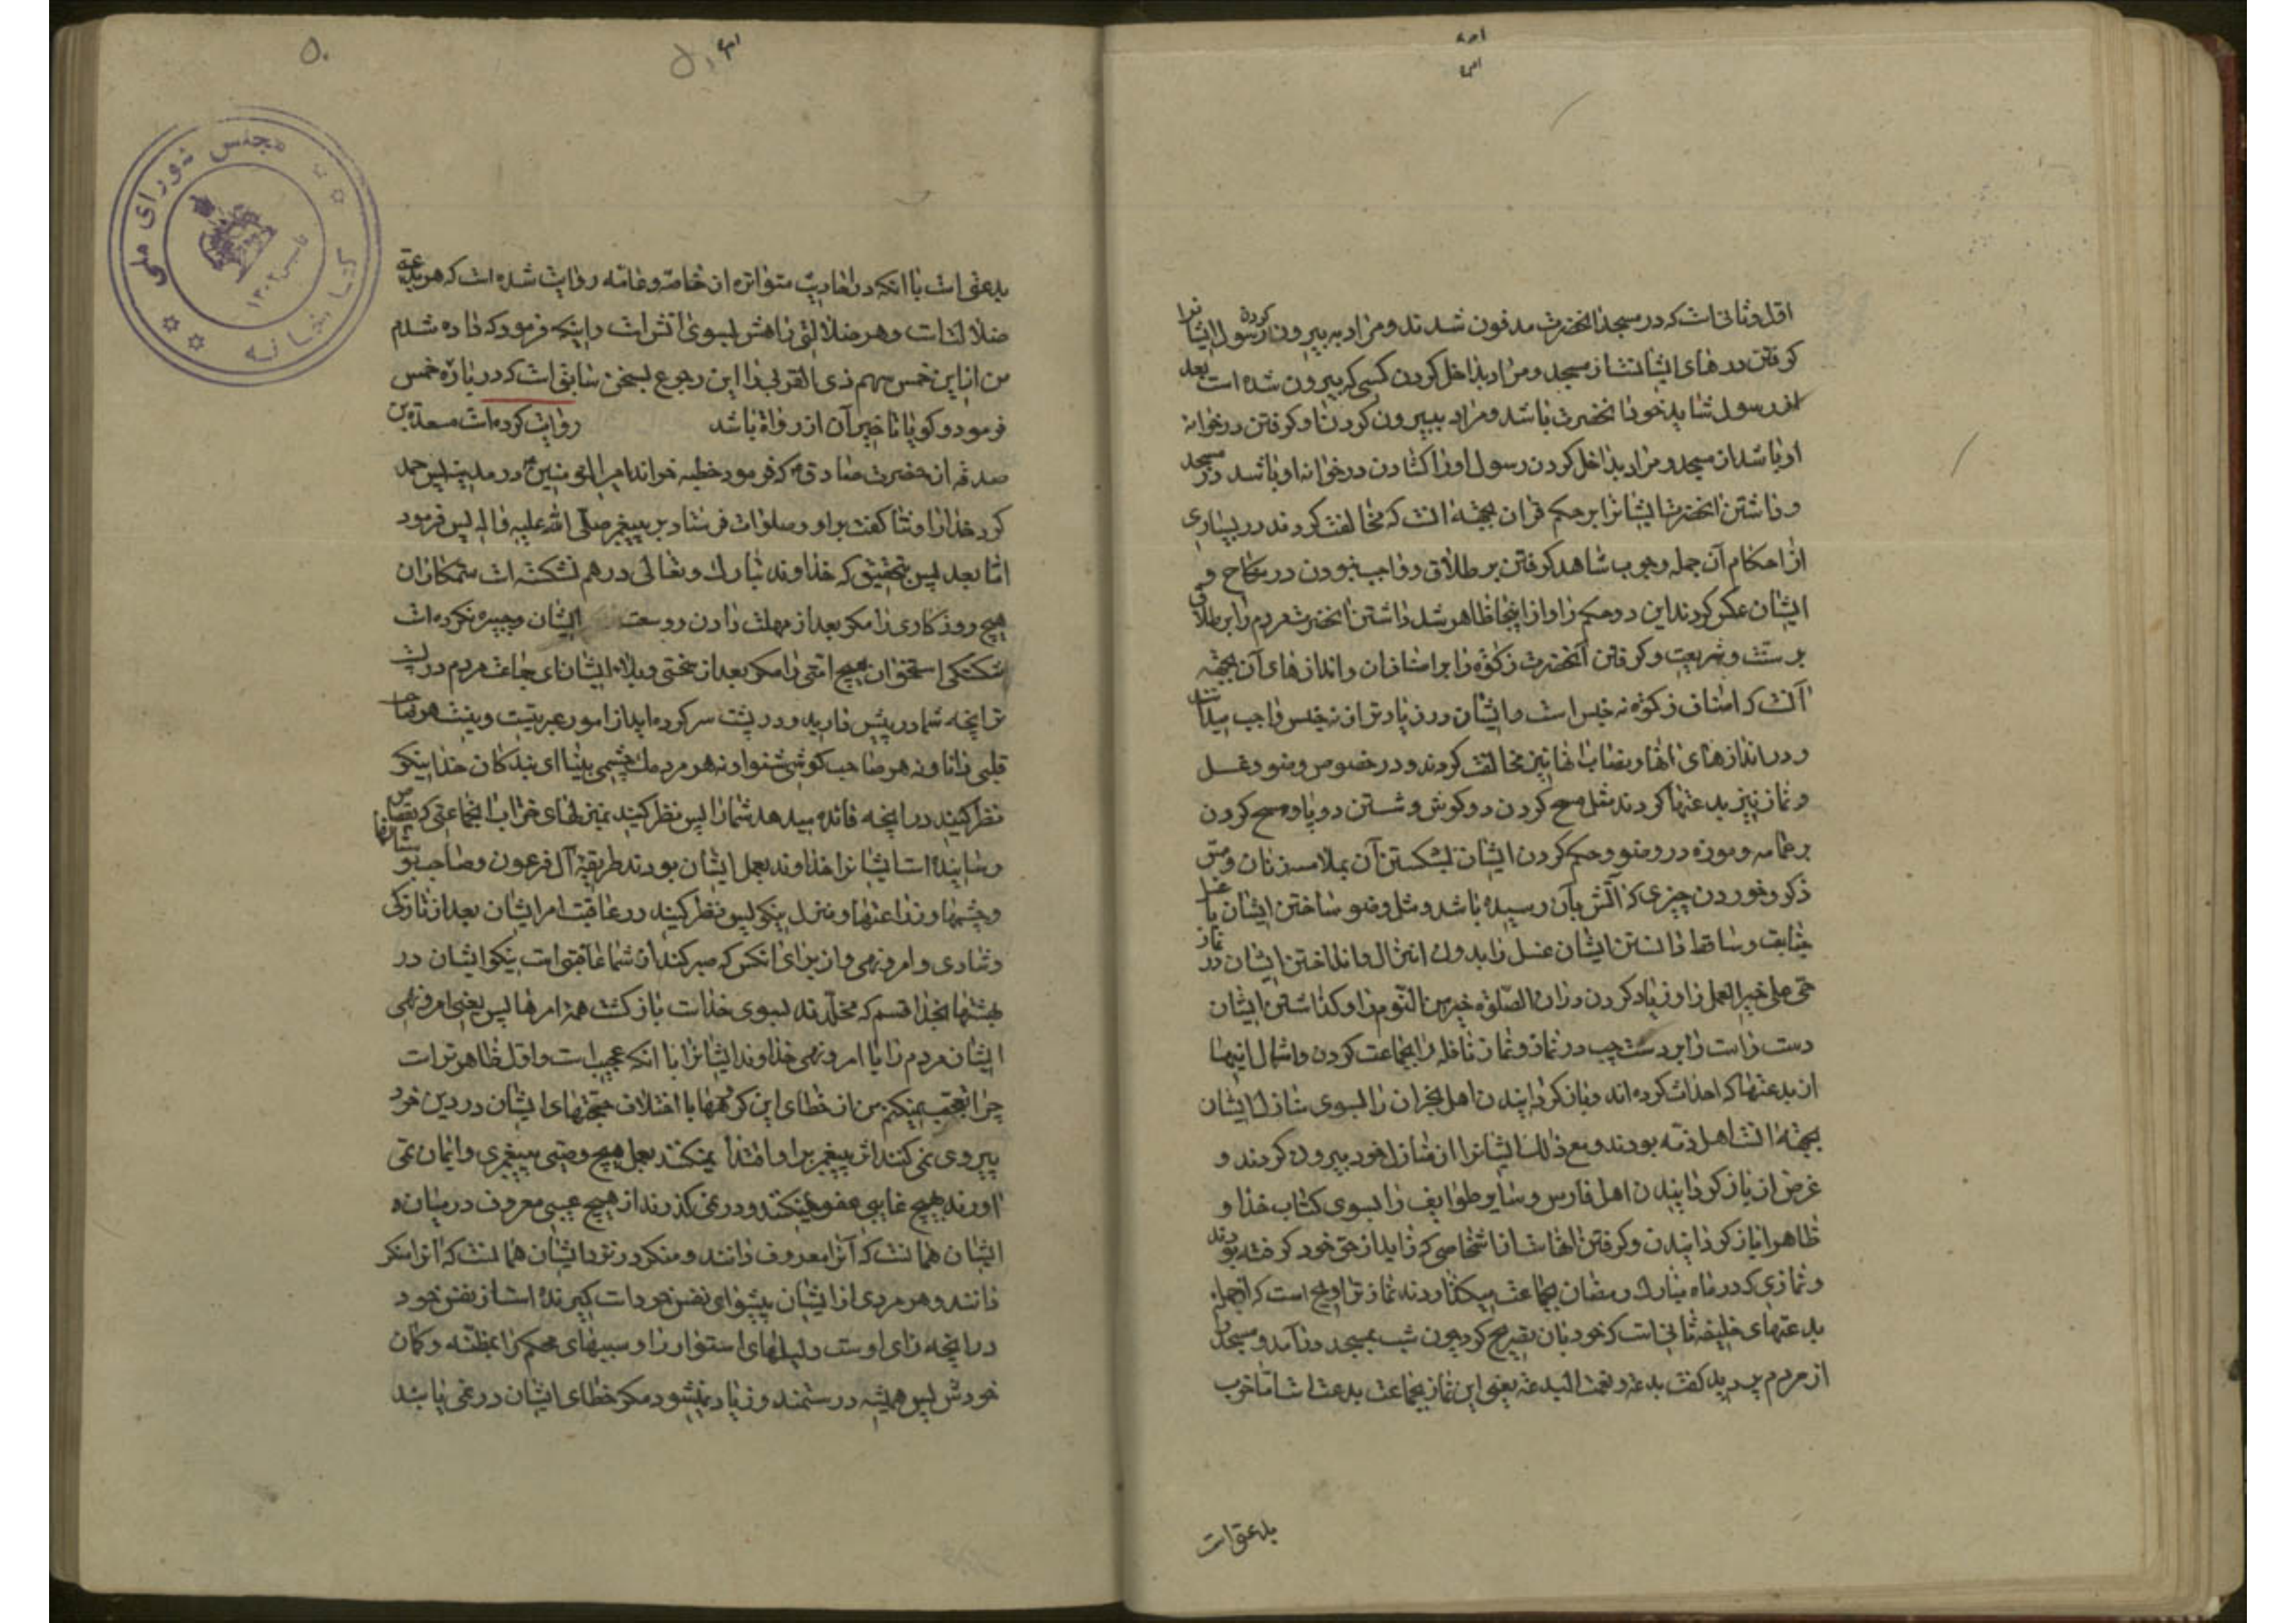 اول و ثانی است که در مسجد آنحضرت مدفون شدند و مراد به بیرون کردن رسول ایشانرا
گرفتن درهای ایشانست از مسجد و مراد بداخل کردن کسی که بیرون شده است بعد
از رسول شاید خود آنحضرت باشد و مراد ببیرون کردن او گرفتن در خوانه
او باشد از مسجد و مراد بداخل کردن رسول او را گشادن در خوانه او باشد در مسجد
و داشتن آنحضرت ایشانرا بر حکم قران بجهة آنست که مخالفت کردند در بسیاری
از احکام آن جمله وجوب شاهد گرفتن بر طلاق و واجب نبودن در نکاح و
ایشان عکس کردند این دو حکم را و از اینجا ظاهر شد داشتن آنحضرت مردم را بر طلاق
بر سنت و شریعت و گرفتن آنحضرت زکوة را بر اصناف آن و اندازهای آن بجهة
آنست که اصناف زکوة نه جنس است و ایشان در زیادتر از نه جنس واجب میدانند
و در اندازهای آنها و نصاب آنها نیز مخالفت کردند و در خصوص وضو و غسل
و نماز نیز بدعتها کردند مثل مسح کردن دو گوش و شستن دو پا و مسح کردن
بر عمامه و موزه در وضو و حکم کردن ایشان بشکستن آن بملامسه زنان و مس
ذکر و خوردن چیزی که آتش بآن رسیده باشد و مثل وضو ساختن ایشان با غسل
جنابت و ساقط دانستن ایشان غسل را بدون انزال و انداختن ایشان در نماز
حی علی خیر العمل را و زیاد کردن در آن الصلوة خیر من النوم را و گذاشتن ایشان
دست راست را بر دست چپ در نماز و نماز نافله را بجماعت کردن و امثال اینها
از بدعتها که احداث کرده اند و بازگردانیدن اهل نجران را بسوی منازل ایشان
بجهة آنست اهل ذمه بودند و مع ذلک ایشانرا از منازل خود بیرون کردند و
غرض از بازگردانیدن اهل فارس و سایر طوایف را بسوی کتاب خدا و
ظاهرا بازگردانیدن و گرفتن آنهاست از اشخاصی که زاید از حق خود گرفته بودند
و نمازی که در ماه مبارک رمضان بجماعت میگذاردند نماز تراویح است که از جمله
بدعتهای خلیفه ثانی است که خود بآن تصریح کرد چون شب بمسجد درآمد و مسجد را
از مردم پر دید گفت بدعة و نعمت البدعة یعنی این نماز بجماعت بدعتست اما خوب
بدعتی است
۵۰
بدعتی است با آنکه در احادیث متواتره از خاصه و عامه روایت شده است که هر بدعتی
ضلالتست و هر ضلالتی راهش بسوی آتش است و اینکه فرمود که داده شدم
من از این خمس سهم ذی القربی را این رجوع بسخن سابق است که در باره خمس
فرمود و گویا تاخیر آن از رواة باشد روایت کرده است مسعدة بن
صدقه از حضرت صادق که فرمود خطبه خواند امیرالمومنین در مدینه پس حمد
کرد خدا را و ثنا گفت بر او و صلوات فرستاد بر پیغمبر صلی الله علیه و اله پس فرمود
اما بعد پس بتحقیق که خداوند تبارک و تعالی درهم نشکسته است ستمکاران
هیچ روزگاری را مگر بعد از مهلت دادن و وسعت ایشان و جبیره نکرده است
شکستگی استخوان هیچ امتی را مگر بعد از سختی و بلاء ایشان ای جماعت مردم در
آنچه شما در پیش دارید و در پشت سر کرده اید از امور عبرتیست و نیست هر صاحب
قلبی دانا و نه هر صاحب گوشی شنوا و نه هر مردمک چشمی بینا ای بندگان خدا نیکو
نظر کنید در آنچه فائده میدهد شما را پس نظر کنید بمنزلهای خراب آنجماعتی که بقصاص
رسانیده است ایشانرا خداوند بعمل ایشان بودند بطریقه آل فرعون و صاحب بوستانها
و چشمها و زراعتها و منزل نیکو پس نظر کنید در عاقبت امر ایشان بعد از تازگی
و شادی و امر و نهی و از برای آنکس که صبر کند از شما عاقبتی است نیکو ایشان در
بهشتها بخدا قسم که مخلدند بسوی خداست بازگشت همه امرها پس یعنی امر و نهی
ایشان مردم را یا امر و نهی خداوند ایشانرا با آنکه عجیب است و اول ظاهرتر است
چرا تعجب نمیکنم من از خطای این گروهها با اختلاف حجتهای ایشان در دین خود
پیروی نمی کنند اثر پیغمبر را و اقتدا نمیکنند بعمل هیچ وصی پیغمبری و ایمان نمی
آورند بهیچ غایبی عفو نمیکنند و در نمی گذرند از هیچ عیبی معروف در میانه
ایشان همانست که آنرا معروف دانند و منکر در نزد ایشان همانست که آنرا منکر
دانند و هر مردی از ایشان پیشوای نفس خود است گیرنده است از نفس خود
در آنچه رای اوست دلیلهای استوار را و سببهای محکم را بمظنه و گمان
خودش پس همیشه در ستمند و زیاد نمیشود مگر خطای ایشان در نمی یابند
کتابخانه مجلس شورای ملی
تاسیس ۱۳۰۲